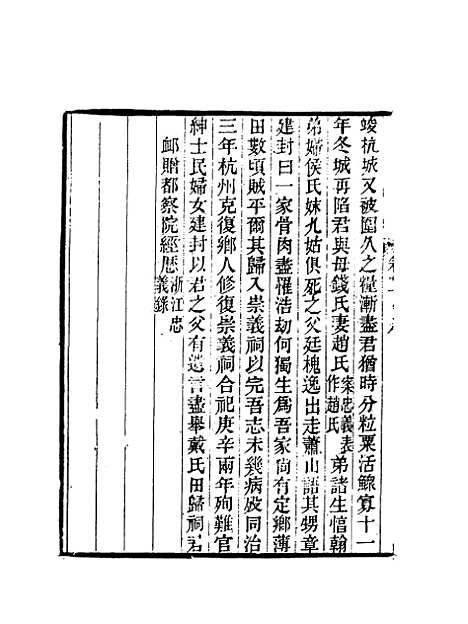 竣杭城又被圍久之糧漸盡君猶時分粒粟活鰥寡十一
年冬城再陷君與母錢氏妻趙氏案忠義表作趙氏弟諸生愔翰
弟婦侯氏妹九姑俱死之父廷槐逸出走蕭山語其甥章
建封曰一家骨肉盡罹浩劫何獨生爲吾家尙有定鄉薄
田數頃賊平爾其歸入崇義祠以完吾志未幾病歿同治
三年杭州克復鄉人修復崇義祠合祀庚辛兩年殉難官
紳士民婦女建封以君之父有遺言盡舉戴氏田歸祠君
卹贈都察院經厯浙江忠義錄